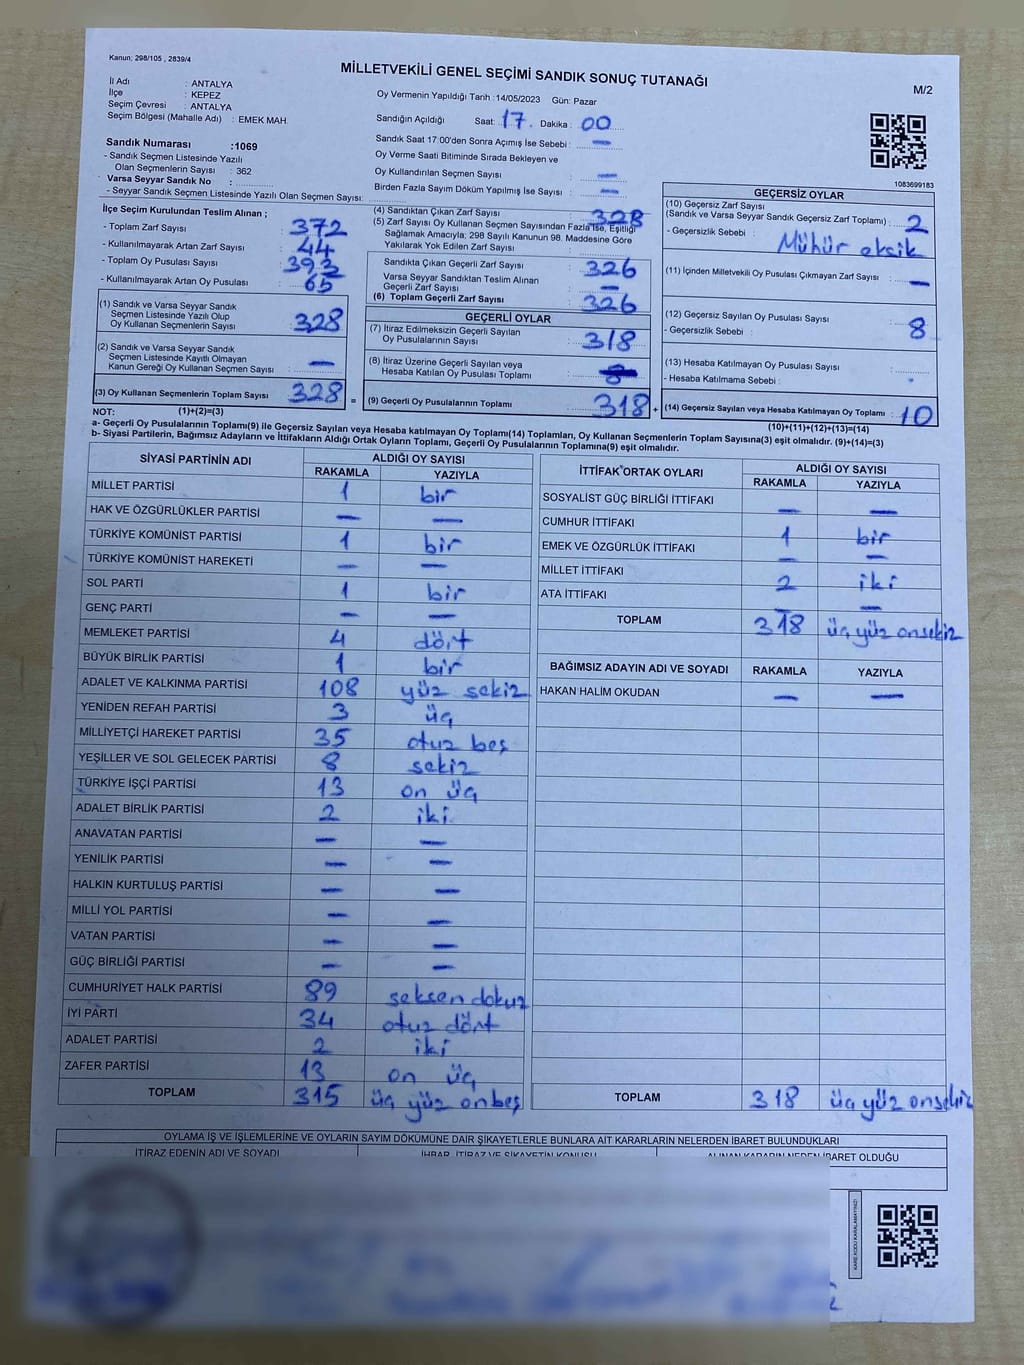 Kanun: 298/105 , 2839/4
MİLLETVEKİLİ GENEL SEÇİMİ SANDIK SONUÇ TUTANAĞI
M/2
İl Adı : ANTALYA
İlçe : KEPEZ
Seçim Çevresi : ANTALYA
Seçim Bölgesi (Mahalle Adı) : EMEK MAH.
Oy Vermenin Yapıldığı Tarih :14/05/2023 Gün: Pazar
Sandığın Açıldığı Saat: 17. Dakika : 00
Sandık Saat 17:00'den Sonra Açımış İse Sebebi : —
Oy Verme Saati Bitiminde Sırada Bekleyen ve
Oy Kullandırılan Seçmen Sayısı : —
Birden Fazla Sayım Döküm Yapılmış İse Sayısı : —
Sandık Numarası :1069
- Sandık Seçmen Listesinde Yazılı
Olan Seçmenlerin Sayısı : 362
Varsa Seyyar Sandık No :
- Seyyar Sandık Seçmen Listesinde Yazılı Olan Seçmen Sayısı:
1083699183
İlçe Seçim Kurulundan Teslim Alınan ;
- Toplam Zarf Sayısı : 372
- Kullanılmayarak Artan Zarf Sayısı : 44
- Toplam Oy Pusulası Sayısı : 393
- Kullanılmayarak Artan Oy Pusulası : 65
(1) Sandık ve Varsa Seyyar Sandık
Seçmen Listesinde Yazılı Olup
Oy Kullanan Seçmenlerin Sayısı : 328
(2) Sandık ve Varsa Seyyar Sandık
Seçmen Listesinde Kayıtlı Olmayan
Kanun Gereği Oy Kullanan Seçmen Sayısı : —
(3) Oy Kullanan Seçmenlerin Toplam Sayısı : 328 =
(1)+(2)=(3)
(4) Sandıktan Çıkan Zarf Sayısı : 328
(5) Zarf Sayısı Oy Kullanan Seçmen Sayısından Fazla İse, Eşitliği
Sağlamak Amacıyla; 298 Sayılı Kanunun 98. Maddesine Göre
Yakılarak Yok Edilen Zarf Sayısı :
Sandıkta Çıkan Geçerli Zarf Sayısı : 326
Varsa Seyyar Sandıktan Teslim Alınan
Geçerli Zarf Sayısı : —
(6) Toplam Geçerli Zarf Sayısı : 326
GEÇERLİ OYLAR
(7) İtiraz Edilmeksizin Geçerli Sayılan
Oy Pusulalarının Sayısı : 318
(8) İtiraz Üzerine Geçerli Sayılan veya
Hesaba Katılan Oy Pusulası Toplamı :
(9) Geçerli Oy Pusulalarının Toplamı : 318 +
GEÇERSİZ OYLAR
(10) Geçersiz Zarf Sayısı
(Sandık ve Varsa Seyyar Sandık Geçersiz Zarf Toplamı) : 2
- Geçersizlik Sebebi : Mühür eksik
(11) İçinden Milletvekili Oy Pusulası Çıkmayan Zarf Sayısı : —
(12) Geçersiz Sayılan Oy Pusulası Sayısı : 8
- Geçersizlik Sebebi :
(13) Hesaba Katılmayan Oy Pusulası Sayısı :
- Hesaba Katılmama Sebebi :
(14) Geçersiz Sayılan veya Hesaba Katılmayan Oy Toplamı : 10
(10)+(11)+(12)+(13)=(14)
NOT:
a- Geçerli Oy Pusulalarının Toplamı(9) ile Geçersiz Sayılan veya Hesaba katılmayan Oy Toplamı(14) Toplamları, Oy Kullanan Seçmenlerin Toplam Sayısına(3) eşit olmalıdır. (9)+(14)=(3)
b- Siyasi Partilerin, Bağımsız Adayların ve İttifakların Aldığı Ortak Oyların Toplamı, Geçerli Oy Pusulalarının Toplamına(9) eşit olmalıdır.
SİYASİ PARTİNİN ADI ALDIĞI OY SAYISI
RAKAMLA YAZIYLA
MİLLET PARTİSİ 1 bir
HAK VE ÖZGÜRLÜKLER PARTİSİ — —
TÜRKİYE KOMÜNİST PARTİSİ 1 bir
TÜRKİYE KOMÜNİST HAREKETİ — —
SOL PARTİ 1 bir
GENÇ PARTİ — —
MEMLEKET PARTİSİ 4 dört
BÜYÜK BİRLİK PARTİSİ 1 bir
ADALET VE KALKINMA PARTİSİ 108 yüz sekiz
YENİDEN REFAH PARTİSİ 3 üç
MİLLİYETÇİ HAREKET PARTİSİ 35 otuz beş
YEŞİLLER VE SOL GELECEK PARTİSİ 8 sekiz
TÜRKİYE İŞÇİ PARTİSİ 13 on üç
ADALET BİRLİK PARTİSİ 2 iki
ANAVATAN PARTİSİ — —
YENİLİK PARTİSİ — —
HALKIN KURTULUŞ PARTİSİ — —
MİLLİ YOL PARTİSİ — —
VATAN PARTİSİ — —
GÜÇ BİRLİĞİ PARTİSİ — —
CUMHURİYET HALK PARTİSİ 89 seksen dokuz
İYİ PARTİ 34 otuz dört
ADALET PARTİSİ 2 iki
ZAFER PARTİSİ 13 on üç
TOPLAM 315 üç yüz onbeş
İTTİFAK ORTAK OYLARI ALDIĞI OY SAYISI
RAKAMLA YAZIYLA
SOSYALİST GÜÇ BİRLİĞİ İTTİFAKI — —
CUMHUR İTTİFAKI 1 bir
EMEK VE ÖZGÜRLÜK İTTİFAKI — —
MİLLET İTTİFAKI 2 iki
ATA İTTİFAKI — —
TOPLAM 318 üç yüz onsekiz
BAĞIMSIZ ADAYIN ADI VE SOYADI RAKAMLA YAZIYLA
HAKAN HALİM OKUDAN — —
TOPLAM 318 üç yüz onsekiz
OYLAMA İŞ VE İŞLEMLERİNE VE OYLARIN SAYIM DÖKÜMÜNE DAİR ŞİKAYETLERLE BUNLARA AİT KARARLARIN NELERDEN İBARET BULUNDUKLARI
İTİRAZ EDENİN ADI VE SOYADI İHBAR, İTİRAZ VE ŞİKAYETİN KONUSU ALINAN KARARIN NEDEN İBARET OLDUĞU
KARE KODU KARALAMAYINIZ!